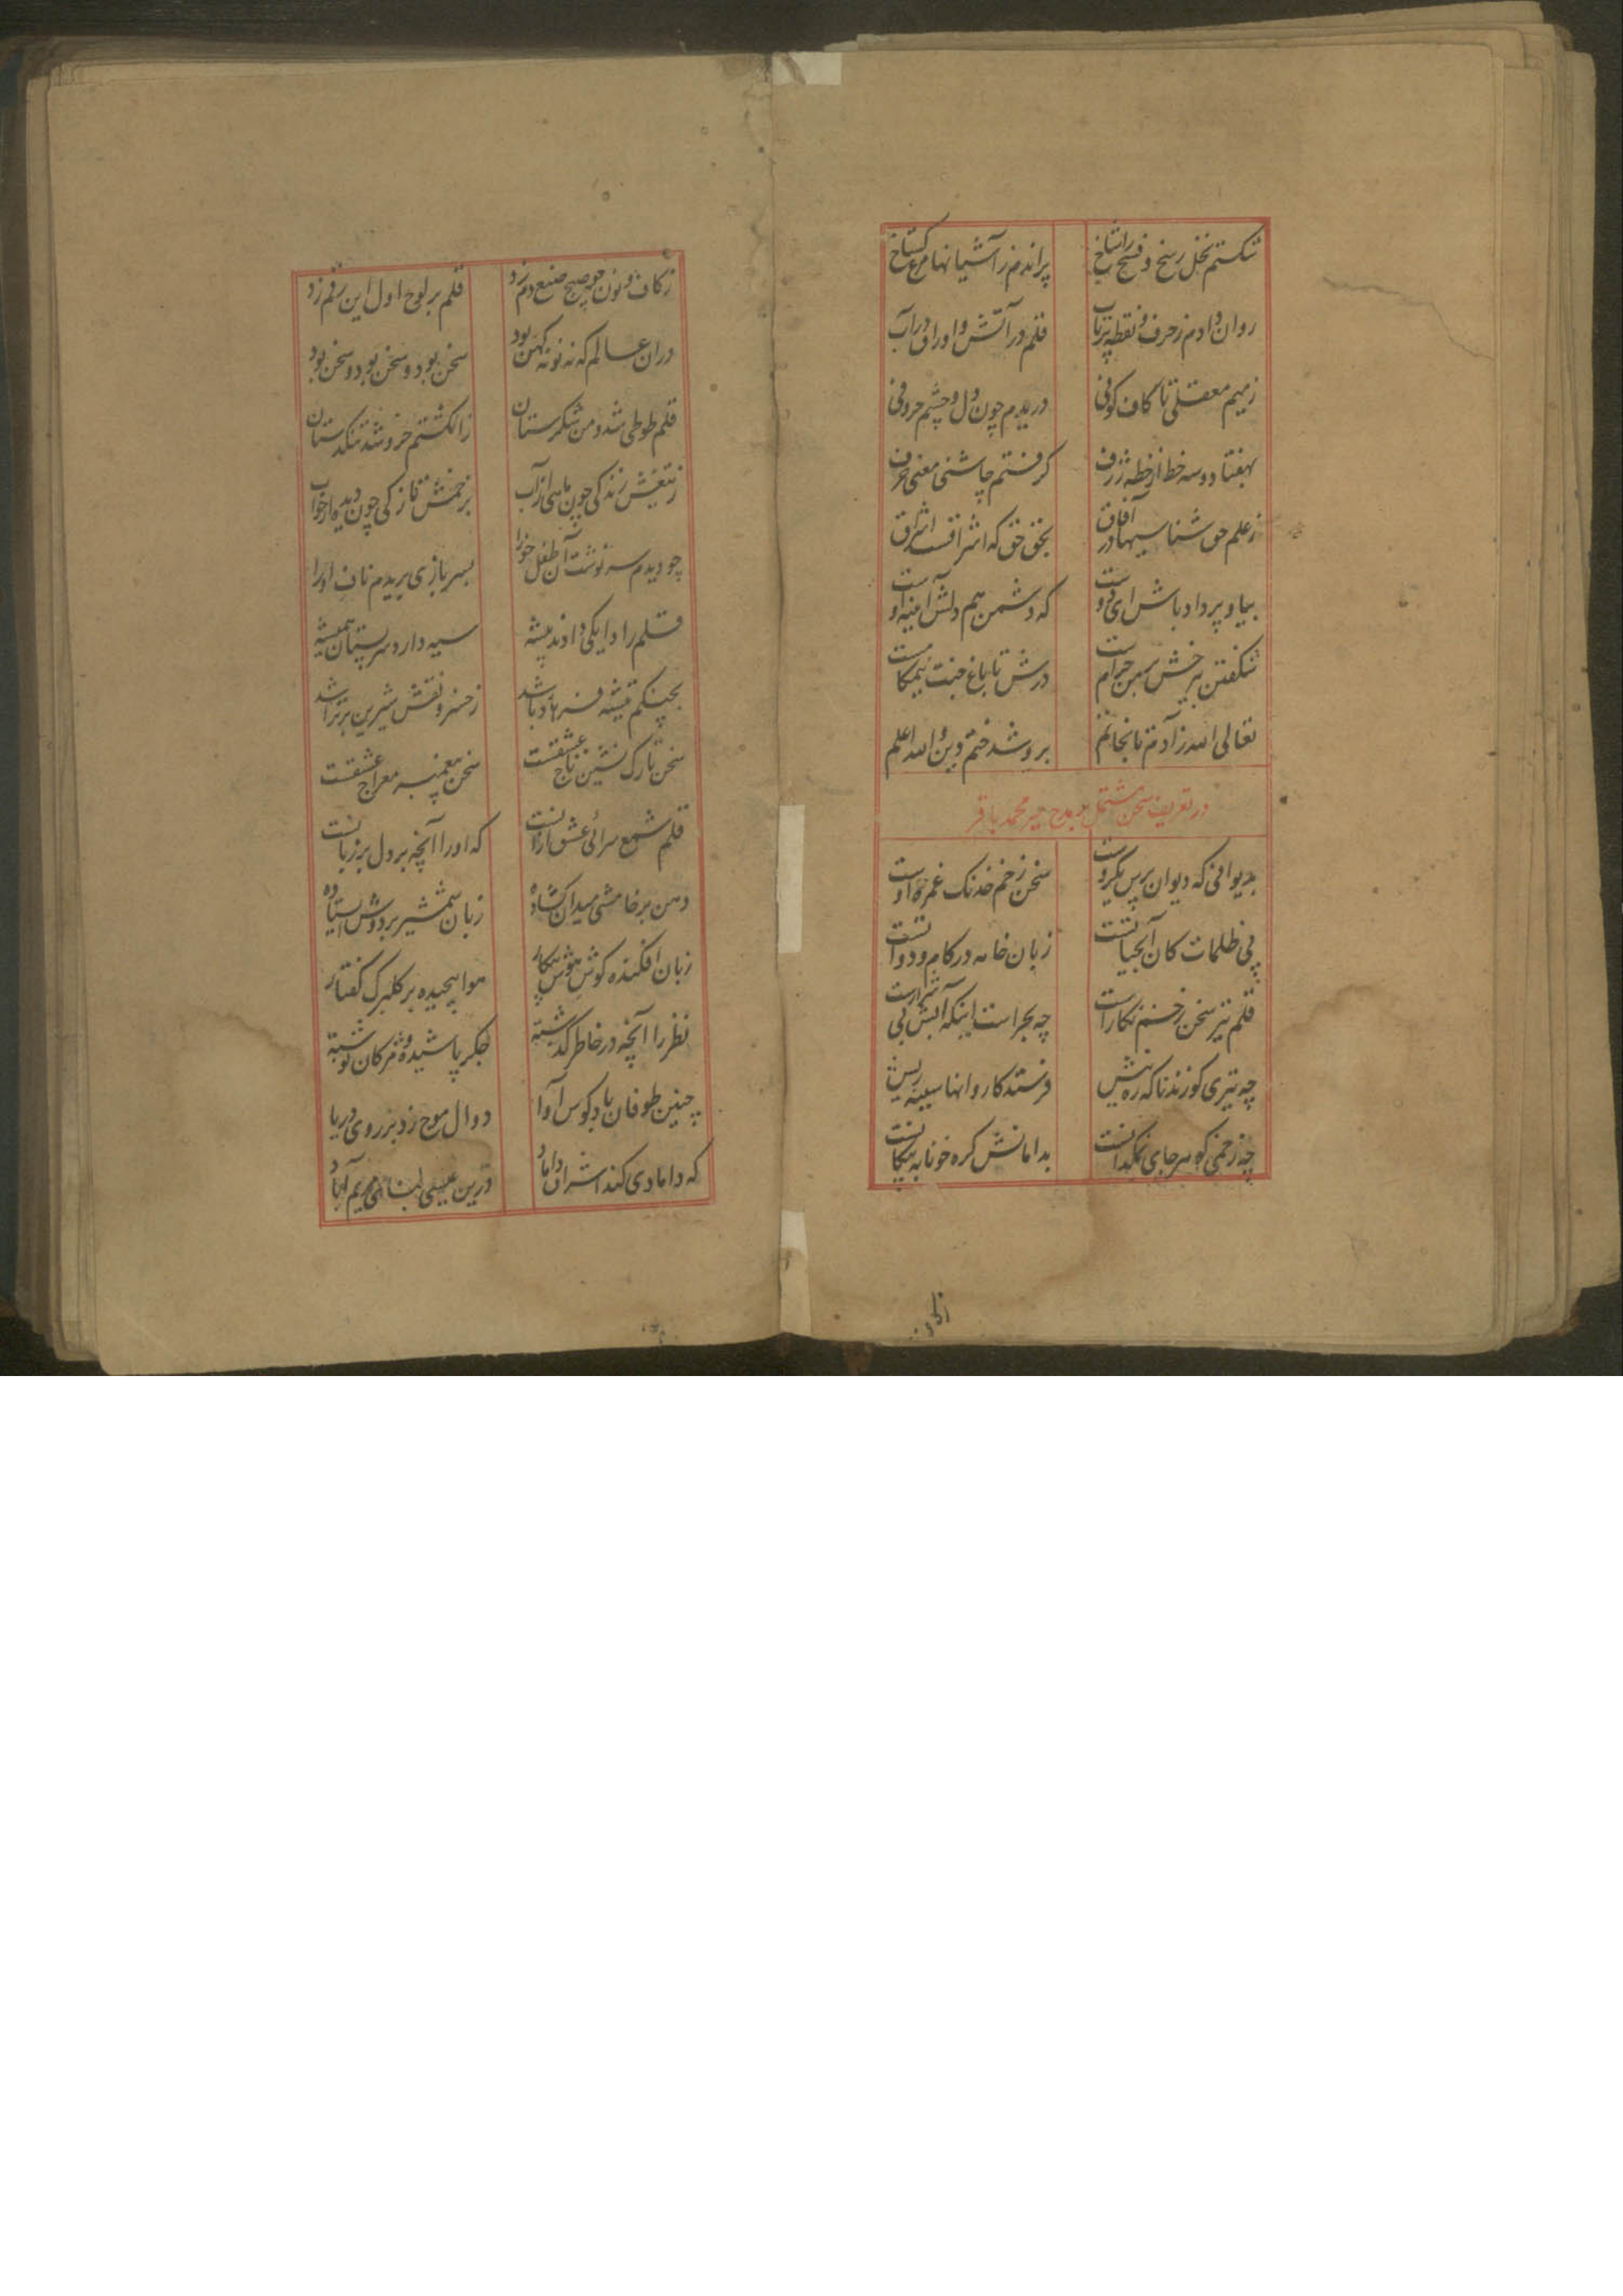 شکستم نخل رسخ و فسخ را شاخ
پراندم ز آشیانها مرغ گستاخ
روان دادم ز حرف و نقطه پرتاب
قلم در آتش و اوراق در آب
ز میم معقلی تا کاف کوفی
دریدم چون دل و چشم حروفی
بهفتاد و سه خط از خطه ژرف
گرفتم چاشنی معنی حرف
ز علم حق شناسیها در آفاق
بحق حق که اشراقست اشراق
بیا و پرداد باش ای دوست
که دشمن هم دلش آیینه اوست
شکفتن بر خش حرامست
درش تا باغ جنت نیم کامست
تعالی الله ز آدم تا بخاتم
برو شد ختم دین و الله اعلم
در تعریف سخن مشتمل بر مدح میر محمد باقر
بدیوانی که دیوان پرس یکروست
سخن زخم خدنگ غمزه اوست
پی ظلمات کان آبحیاتست
زبان خامه در کام دواتست
قلم تیر سخن زخم نگارست
چه بحراست اینکه آبش بی شرارست
چه تیری کو زند ناکه ره پیش
فرستد کاروانها سینه ریش
چه زخمی کو بهر جای نمکدانست
بدامانش گره خونابه پیکانست
ز کاف و نون چو صبح صنع دم زد
قلم بر لوح اول این رقم زد
در ان عالم که نه نو نه کهن بود
سخن بود و سخن بود و سخن بود
قلم طوطی شد و من شکرستان
ز انگشتم خروشد تنگدستان
ز تیغش زندگی چون ماهی از آب
بزخمش تازگی چون دیده از خواب
چو دیدم سرنوشت آن طفل خورا
بسربازی بریدم ناف او را
قلم را دایگی دادند پیشه
سیه دارد سر پستان همیشه
بچنگم تیشه فرهاد باشد
ز خسرو نقش شیرین بر تراشد
سخن تارک نشین تاج عشقست
سخن پیغمبر معراج عشقست
قلم شمع سرای عشق از آنست
که او را آنچه بر دل بر زبانست
دهن بر خامشی میدان گشاده
زبان شمشیر بر دوش ایستاده
زبان افکنده گوش هوش بیکار
هوا پیچیده بر گلبرگ گفتار
نظر را آنچه در خاطر گذشته
جگر پاشیده و مژگان نوشته
چنین طوفان باد کوس آوا
دوال موج زد بر روی دریا
که دامادی کند اشراق داماد
درین عیسی لبناهی مریم آباد
ز کاف و